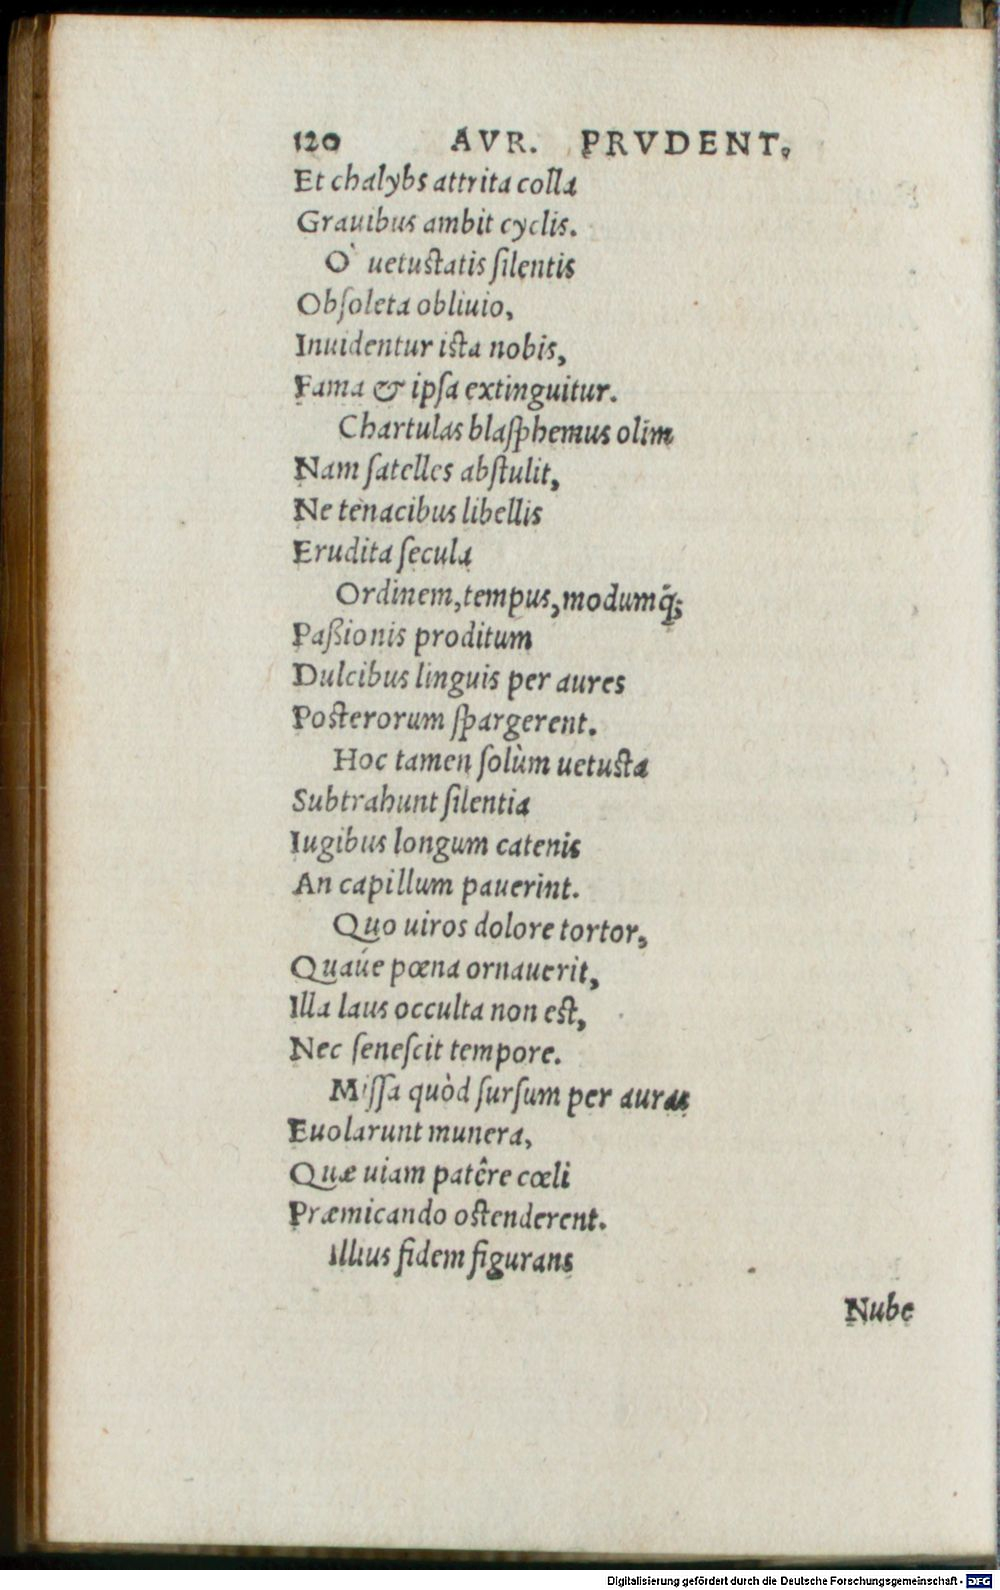 120 AVR. PRVDENT.
Et chalybs attrita colla
Grauibus ambit cyclis.
O` uetustatis ſilentis
Obſoleta obliuio,
Inuidentur ista nobis,
Fama & ipſa extinguitur.
Chartulas blaſphemus olim
Nam ſatelles abſtulit,
Ne tenacibus libellis
Erudita ſecula
Ordinem, tempus, modumq́;
Paßionis proditum
Dulcibus linguis per aures
Posterorum ſpargerent.
Hoc tamen ſolùm uetusta
Subtrahunt ſilentia
Iugibus longum catenis
An capillum pauerint.
Quo uiros dolore tortor,
Quaúe pœna ornauerit,
Illa laus occulta non est,
Nec ſeneſcit tempore.
Miſſa quòd ſurſum per auras
Euolarunt munera,
Quæ uiam patêre cœli
Præmicando ostenderent.
Illius fidem figurans
Nube
Digitalisierung gefördert durch die Deutsche Forschungsgemeinschaft - DFG